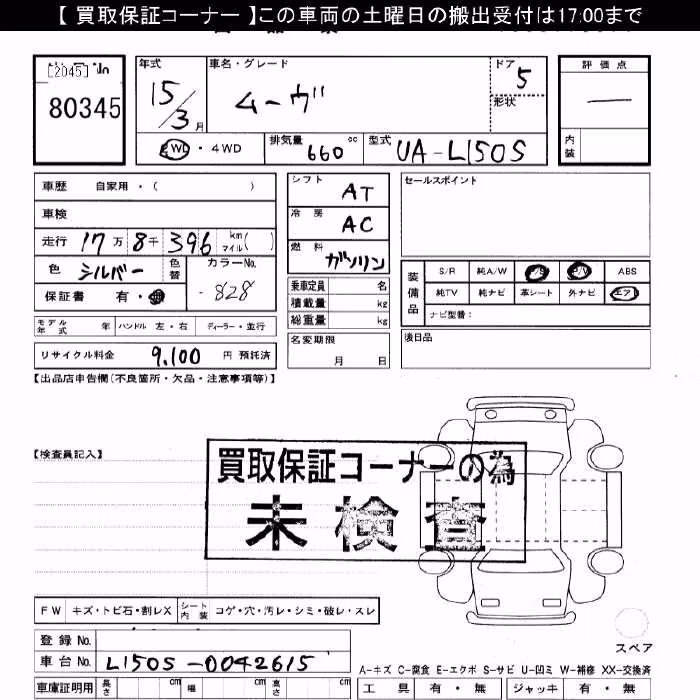 【 買取保証コーナー 】この車両の土曜日の搬出受付は17:00まで
[2045]
80345
年式
15/3月
車名・グレード
ムーヴ
ドア
5
形状
評価点
—
内装
2WD・4WD
排気量 660 cc
型式 UA-L150S
車歴 自家用・( )
車検
走行 17万8千396 km マイル( )
色 シルバー
色替
カラーNo.
828
保証書 有・無
モデル年式 年 ハンドル 左・右 ディーラー・並行
リサイクル料金 9,100 円 預託済
シフト AT
冷房 AC
燃料 ガソリン
乗車定員 名
積載量 kg
総重量 kg
名変期限
月 日
セールスポイント
装備品
S/R 純A/W P/S P/W ABS
純TV 純ナビ 革シート 外ナビ エアB
ナビ型番：
後日品
【出品店申告欄(不良箇所・欠品・注意事項等)】
【検査員記入】
買取保証コーナーの為
未検査
FW キズ・トビ石・割レX シート内装 コゲ・穴・汚レ・シミ・破レ・スレ
スペア
登録No.
車台No. L150S-0042615
A-キズ C-腐食 E-エクボ S-サビ U-凹ミ W-補修 XX-交換済
車庫証明用 長さ cm 幅 cm 高さ cm
工具 有・無 ジャッキ 有・無